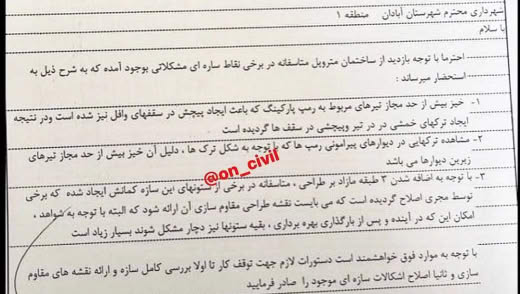 شهرداری محترم شهرستان آبادان منطقه ۱
با سلام
احتراما با توجه بازدید از ساختمان متروپل متاسفانه در برخی نقاط سازه ای مشکلاتی بوجود آمده که به شرح ذیل به
استحضار میرساند :
۱- خیز بیش از حد مجاز تیرهای مربوط به رمپ پارکینگ که باعث ایجاد پیچش در سقفهای واقل نیز شده است ودر نتیجه
ایجاد ترکهای خمشی در در تیر وپیچشی در سقف ها گردیده است
۲- مشاهده ترکهایی در دیوارهای پیرامونی رمپ ها که با توجه به شکل ترک ها ، دلیل آن خیز بیش از حد مجاز تیرهای
زیرین دیوارها می باشد
@on_civil
۳- با توجه به اضافه شدن ۳ طبقه مازاد بر طراحی ، متاسفانه در برخی از ستونهای این سازه کمانش ایجاد شده که برخی
توسط مجری اصلاح گردیده است که می بایست نقشه طراحی مقاوم سازی آن ارائه شود که البته با توجه به شواهد ،
امکان این که در آینده و پس از بارگذاری بهره برداری ، بقیه ستونها نیز دچار مشکل شوند بسیار زیاد است
با توجه به موارد فوق خواهشمند است دستورات لازم جهت توقف کار تا اولا بررسی کامل سازه و ارائه نقشه های مقاوم
سازی و ثانیا اصلاح اشکالات سازه ای موجود را صادر فرمایید